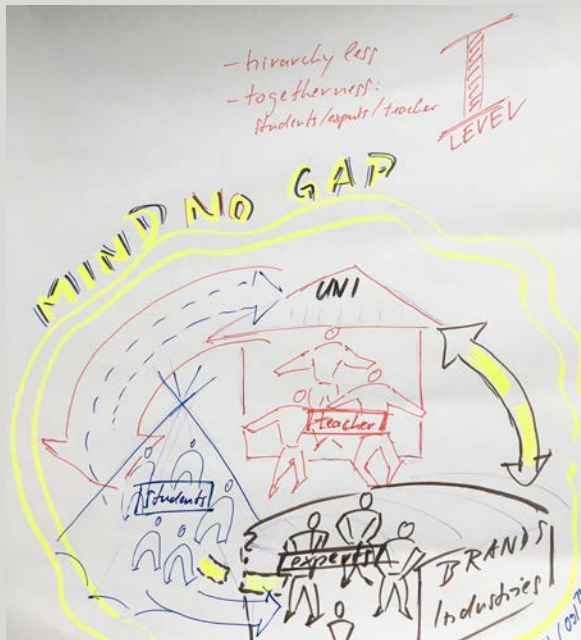 - hirarchy less
- togetherness:
students/experts/teacher
LEVEL
MIND NO GAP
UNI
teacher
students
experts
BRANDS
Industries